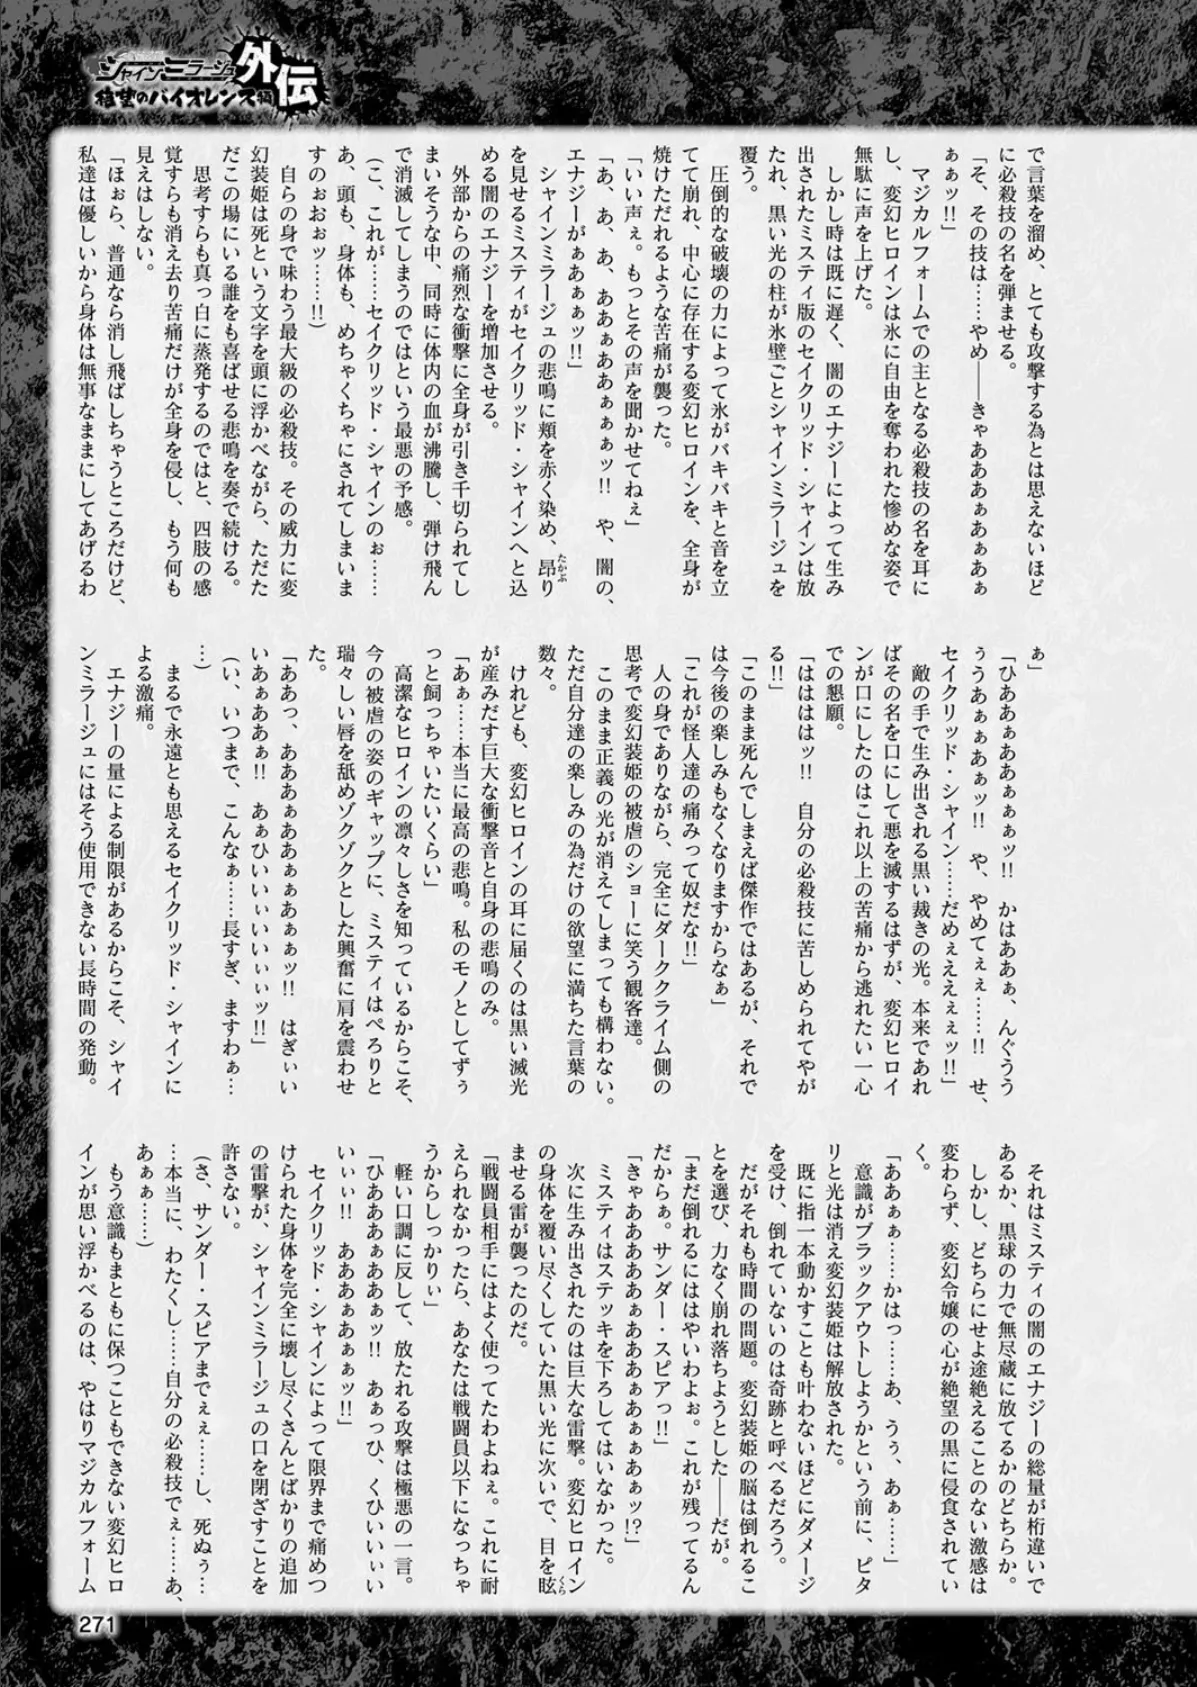 シャインミラージュ
外伝
待望のバイオレンス編
で言葉を溜め、とても攻撃する為とは思えないほど
に必殺技の名を弾ませる。
「そ、その技は……やめ――きゃあああぁあぁあぁ
ぁぁッ!!」
マジカルフォームでの主となる必殺技の名を耳に
し、変幻ヒロインは氷に自由を奪われた惨めな姿で
無駄に声を上げた。
しかし時は既に遅く、闇のエナジーによって生み
出されたミスティ版のセイクリッド・シャインは放
たれ、黒い光の柱が氷壁ごとシャインミラージュを
覆う。
圧倒的な破壊の力によって氷がバキバキと音を立
てて崩れ、中心に存在する変幻ヒロインを、全身が
焼けただれるような苦痛が襲った。
「いい声ぇ。もっとその声を聞かせてねぇ」
「あ、あ、あ、ああぁああぁぁぁッ!! や、闇の、
エナジーがぁあぁぁッ!!」
シャインミラージュの悲鳴に頬を赤く染め、昂り
たかぶ
を見せるミスティがセイクリッド・シャインへと込
める闇のエナジーを増加させる。
外部からの痛烈な衝撃に全身が引き千切られてし
まいそうな中、同時に体内の血が沸騰し、弾け飛ん
で消滅してしまうのではという最悪の予感。
(こ、これが……セイクリッド・シャインのぉ……
あ、頭も、身体も、めちゃくちゃにされてしまいま
すのぉおぉッ……!!)
自らの身で味わう最大級の必殺技。その威力に変
幻装姫は死という文字を頭に浮かべながら、ただた
だこの場にいる誰をも喜ばせる悲鳴を奏で続ける。
思考すらも真っ白に蒸発するのではと、四肢の感
覚すらも消え去り苦痛だけが全身を侵し、もう何も
見えはしない。
「ほぉら、普通なら消し飛ばしちゃうところだけど、
私達は優しいから身体は無事なままにしてあげるわ
ぁ」
「ひああぁああぁぁぁッ!! かはああぁ、んぐうう
ぅうあぁぁあぁッ!! や、やめてぇぇ……!! せ、
セイクリッド・シャイン……だめぇええぇぇッ!!」
敵の手で生み出される黒い裁きの光。本来であれ
ばその名を口にして悪を滅するはずが、変幻ヒロイ
ンが口にしたのはこれ以上の苦痛から逃れたい一心
での懇願。
「はははハッ!! 自分の必殺技に苦しめられてやが
る!!」
「このまま死んでしまえば傑作ではあるが、それで
は今後の楽しみもなくなりますからなぁ」
「これが怪人達の痛みって奴だな!!」
人の身でありながら、完全にダーククライム側の
思考で変幻装姫の被虐のショーに笑う観客達。
このまま正義の光が消えてしまっても構わない。
ただ自分達の楽しみの為だけの欲望に満ちた言葉の
数々。
けれども、変幻ヒロインの耳に届くのは黒い滅光
が産みだす巨大な衝撃音と自身の悲鳴のみ。
「あぁ……本当に最高の悲鳴。私のモノとしてずぅ
っと飼っちゃいたいくらい」
高潔なヒロインの凛々しさを知っているからこそ、
今の被虐の姿のギャップに、ミスティはぺろりと
瑞々しい唇を舐めゾクゾクとした興奮に肩を震わせ
た。
「ああっ、あああぁああぁぁあぁぁッ!! はぎぃい
いあぁああぁ!! あぁひいいぃいいぃぃッ!!」
(い、いつまで、こんなぁ……長すぎ、ますわぁ…
…)
まるで永遠とも思えるセイクリッド・シャインに
よる激痛。
エナジーの量による制限があるからこそ、シャイ
ンミラージュにはそう使用できない長時間の発動。
それはミスティの闇のエナジーの総量が桁違いで
あるか、黒球の力で無尽蔵に放てるかのどちらか。
しかし、どちらにせよ途絶えることのない激感は
変わらず、変幻令嬢の心が絶望の黒に侵食されてい
く。
「ああぁぁ……かはっ……あ、うぅ、あぁ……」
意識がブラックアウトしようかという前に、ピタ
リと光は消え変幻装姫は解放された。
既に指一本動かすことも叶わないほどにダメージ
を受け、倒れていないのは奇跡と呼べるだろう。
だがそれも時間の問題。変幻装姫の脳は倒れるこ
とを選び、力なく崩れ落ちようとした――だが。
「まだ倒れるにははやいわよぉ。これが残ってるん
だからぁ。サンダー・スピアっ!!」
「きゃあああああぁあああぁあぁぁあぁッ!?」
ミスティはステッキを下ろしてはいなかった。
次に生み出されたのは巨大な雷撃。変幻ヒロイン
の身体を覆い尽くしていた黒い光に次いで、目を眩
くら
ませる雷が襲ったのだ。
「戦闘員相手にはよく使ってたわよねぇ。これに耐
えられなかったら、あなたは戦闘員以下になっちゃ
うからしっかりぃ」
軽い口調に反して、放たれる攻撃は極悪の一言。
「ひあああぁああぁッ!! あぁっひ、くひいいぃい
いぃぃ!! あああぁあぁぁッ!!」
セイクリッド・シャインによって限界まで痛めつ
けられた身体を完全に壊し尽くさんとばかりの追加
の雷撃が、シャインミラージュの口を閉ざすことを
許さない。
(さ、サンダー・スピアまでぇぇ……し、死ぬぅ…
…本当に、わたくし……自分の必殺技でぇ……あ、
あぁぁ……)
もう意識もまともに保つこともできない変幻ヒロ
インが思い浮かべるのは、やはりマジカルフォーム
271